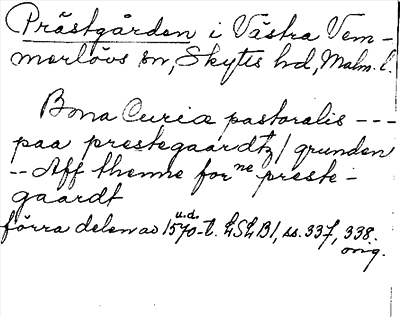 Prästgården i Västra Vem-
merlövs sn, Skytts hd, Malm. l.
Bona Curiæ pastoralis ---
paa prestegaardtz / grunden
-- Aff themne for ne preste-
gaardt
förra delen av 1570-t. u.d. LSLB1, ss. 337, 338.
orig.